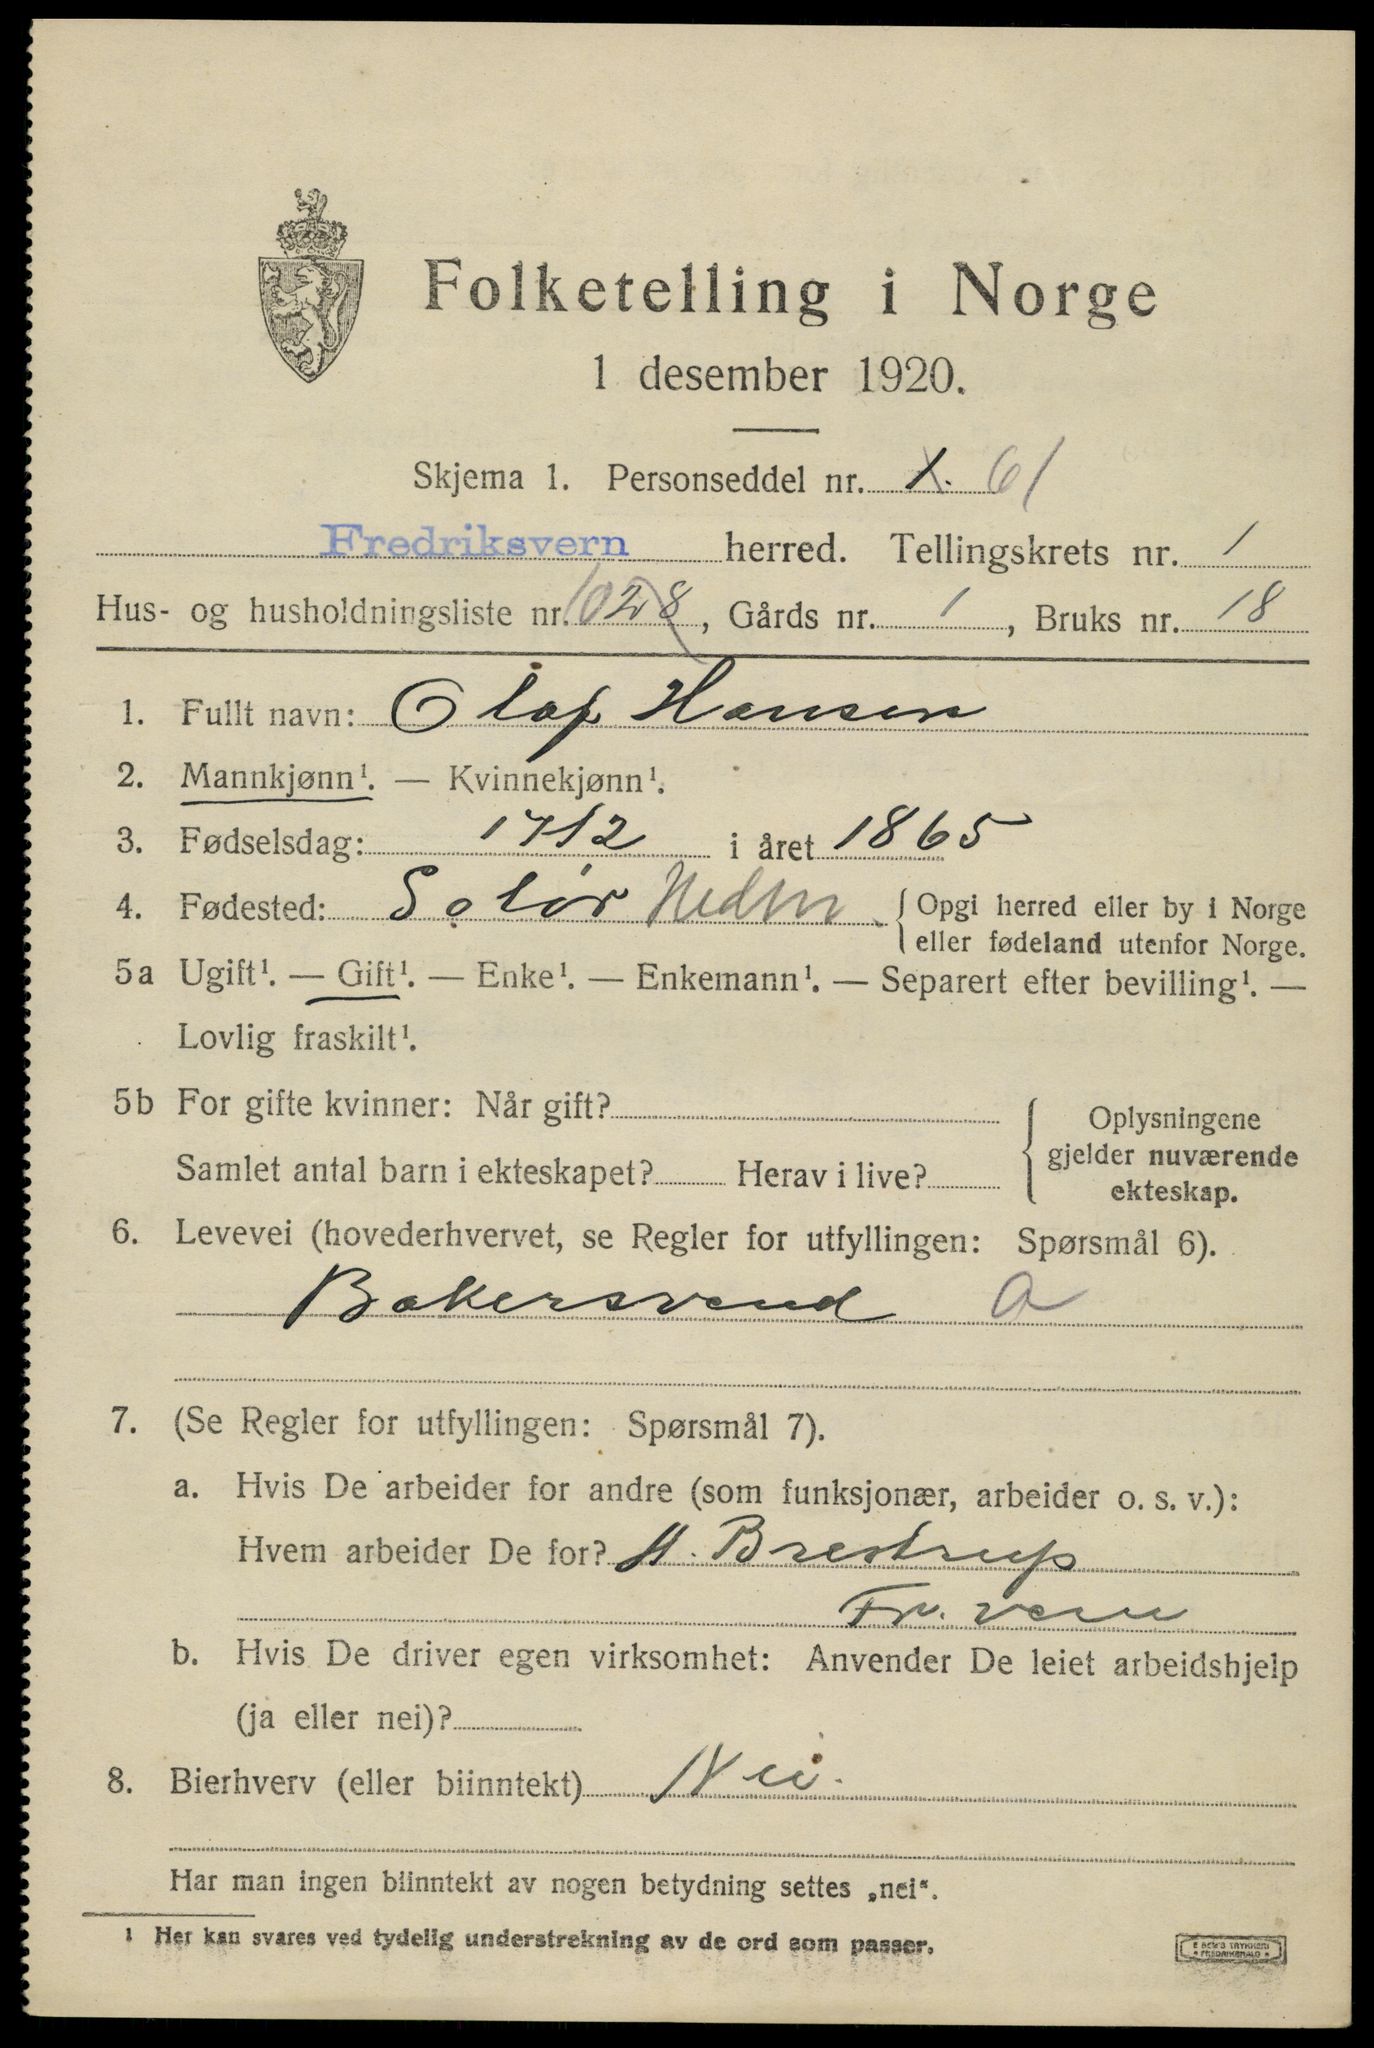 Folketelling i Norge
1 desember 1920.
Skjema 1. Personseddel nr. 61
Fredriksvern herred. Tellingskrets nr. 1
Hus- og husholdningsliste nr. 10 28, Gårds nr. 1, Bruks nr. 18
1. Fullt navn: Olaf Hansen
2. Mannkjønn¹. — Kvinnekjønn¹.
3. Fødselsdag: 17/12 i året 1865
4. Fødested: Solör Hedm. { Opgi herred eller by i Norge
eller fødeland utenfor Norge.
5a Ugift¹. — Gift¹. — Enke¹. — Enkemann¹. — Separert efter bevilling¹. —
Lovlig fraskilt¹.
5b For gifte kvinner: Når gift?
Samlet antal barn i ekteskapet? Herav i live?
{ Oplysningene
gjelder nuværende
ekteskap.
6. Levevei (hovederhvervet, se Regler for utfyllingen: Spørsmål 6).
Bakersvend a
7. (Se Regler for utfyllingen: Spørsmål 7).
a. Hvis De arbeider for andre (som funksjonær, arbeider o. s. v.):
Hvem arbeider De for? H. Brestrup
Fr. vern
b. Hvis De driver egen virksomhet: Anvender De leiet arbeidshjelp
(ja eller nei)?
8. Bierhverv (eller biinntekt) Nei.
Har man ingen biinntekt av nogen betydning settes „nei“.
1 Her kan svares ved tydelig understrekning av de ord som passer.